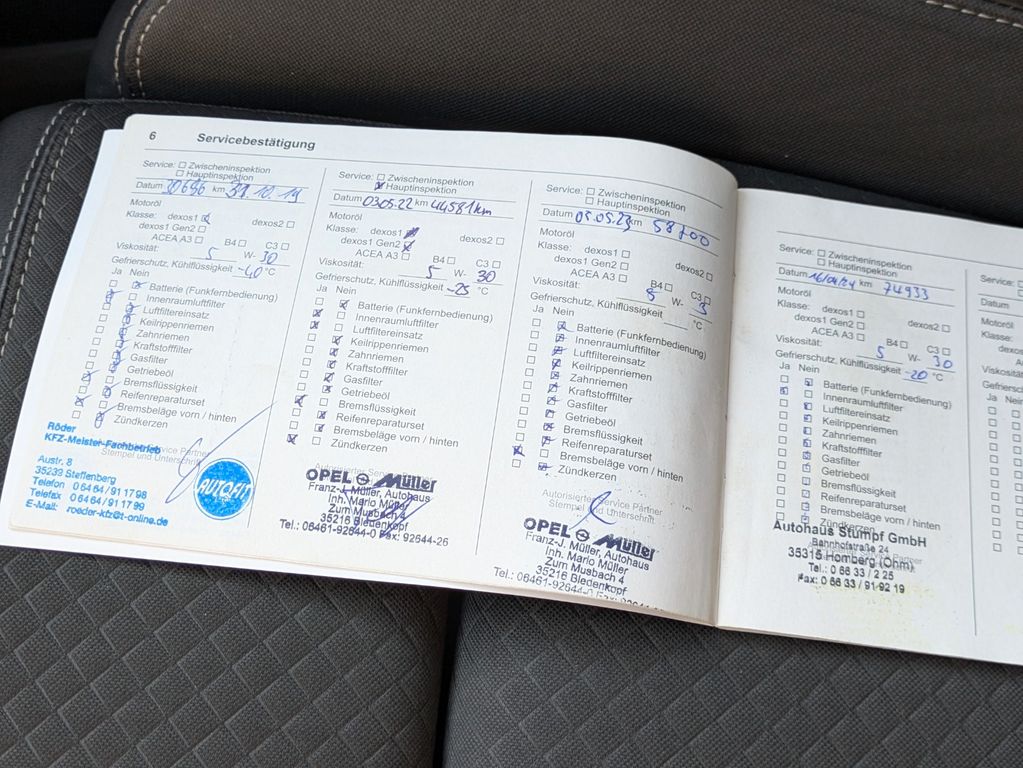 6 Servicebestätigung
Service: Zwischeninspektion
Hauptinspektion
Datum 20696 km 31.10.19
Motoröl
Klasse: dexos1 dexos2
dexos1 Gen2
ACEA A3 B4 C3
Viskosität: 5 W- 30
Gefrierschutz, Kühlflüssigkeit -40 °C
Ja Nein
Batterie (Funkfernbedienung)
Innenraumluftfilter
Luftfiltereinsatz
Keilrippenriemen
Zahnriemen
Kraftstofffilter
Gasfilter
Getriebeöl
Bremsflüssigkeit
Reifenreparaturset
Bremsbeläge vorn / hinten
Zündkerzen
Service Partner
Stempel und Unterschrift
Röder
KFZ-Meister-Fachbetrieb
Austr. 8
35239 Steffenberg
Telefon 0 64 64 / 91 17 98
Telefax 0 64 64 / 91 17 99
E-Mail: roeder-kfz@t-online.de
AUTOFIT
Service: Zwischeninspektion
Hauptinspektion
Datum 03.05.22 km 44581km
Motoröl
Klasse: dexos1 dexos2
dexos1 Gen2
ACEA A3 B4 C3
Viskosität: 5 W- 30
Gefrierschutz, Kühlflüssigkeit -25 °C
Ja Nein
Batterie (Funkfernbedienung)
Innenraumluftfilter
Luftfiltereinsatz
Keilrippenriemen
Zahnriemen
Kraftstofffilter
Gasfilter
Getriebeöl
Bremsflüssigkeit
Reifenreparaturset
Bremsbeläge vorn / hinten
Zündkerzen
Autorisierter Service Partner
OPEL Müller
Franz-J. Müller, Autohaus
Inh. Mario Müller
Zum Musbach 4
35216 Biedenkopf
Tel.: 06461-92644-0 Fax: 92644-26
Service: Zwischeninspektion
Hauptinspektion
Datum 05.05.23 km 58700
Motoröl
Klasse: dexos1 dexos2
dexos1 Gen2
ACEA A3 B4 C3
Viskosität: 5 W- 3
Gefrierschutz, Kühlflüssigkeit °C
Ja Nein
Batterie (Funkfernbedienung)
Innenraumluftfilter
Luftfiltereinsatz
Keilrippenriemen
Zahnriemen
Kraftstofffilter
Gasfilter
Getriebeöl
Bremsflüssigkeit
Reifenreparaturset
Bremsbeläge vorn / hinten
Zündkerzen
Autorisierter Service Partner
Stempel und Unterschrift
OPEL Müller
Franz-J. Müller, Autohaus
Inh. Mario Müller
Zum Musbach 4
35216 Biedenkopf
Tel.: 06461-92644-0 Fax: 92644
Service: Zwischeninspektion
Hauptinspektion
Datum 16/04/24 km 74933
Motoröl
Klasse: dexos1 dexos2
dexos1 Gen2
ACEA A3 B4 C3
Viskosität: 5 W- 30
Gefrierschutz, Kühlflüssigkeit -20 °C
Ja Nein
Batterie (Funkfernbedienung)
Innenraumluftfilter
Luftfiltereinsatz
Keilrippenriemen
Zahnriemen
Kraftstofffilter
Gasfilter
Getriebeöl
Bremsflüssigkeit
Reifenreparaturset
Bremsbeläge vorn / hinten
Zündkerzen
Autohaus Stumpf GmbH
Bahnhofstraße 24
35315 Homberg (Ohm)
Tel.: 0 66 33 / 2 25
Fax: 0 66 33 / 91 92 19
Service:
Datum
Motoröl
Klasse:
Viskosität:
Gefrierschutz
Ja Nein